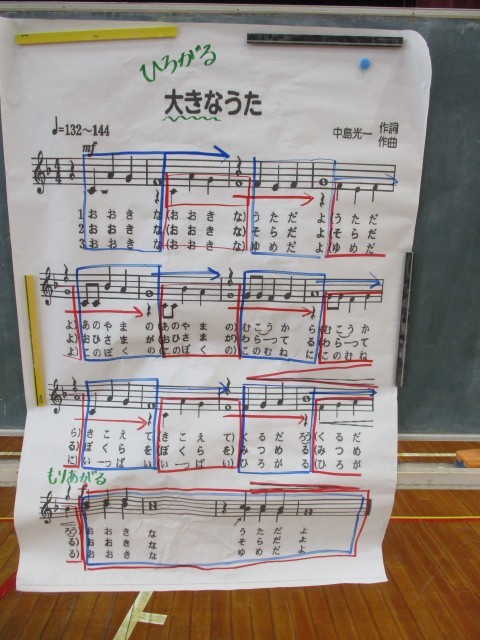 ひろがる
大きなうた
♩=132～144
中島光一 作詞
作曲
mf
1 おおきな(おおきな)うただよ(うただ
2 おおきな(おおきな)そらだよ(そらだ
3 おおきな(おおきな)ゆめだよ(ゆめだ
よ)あのやまの(あのやまの)むこうから(むこうか
よ)おひさまが(おひさまが)わらってる(わらって
よ)このぼくの(このぼくの)このむねに(このむね
ら)きこえて(きこえて)くるだろう(くるだ
る)ぼくらを(ぼくらを)みつめる(みつめ
に)いっぱい(いっぱい)ひろがる(ひろが
もりあがる
ろう)おおきな うただよ
る)おおきな そらだよ
る)おおきな ゆめだよ